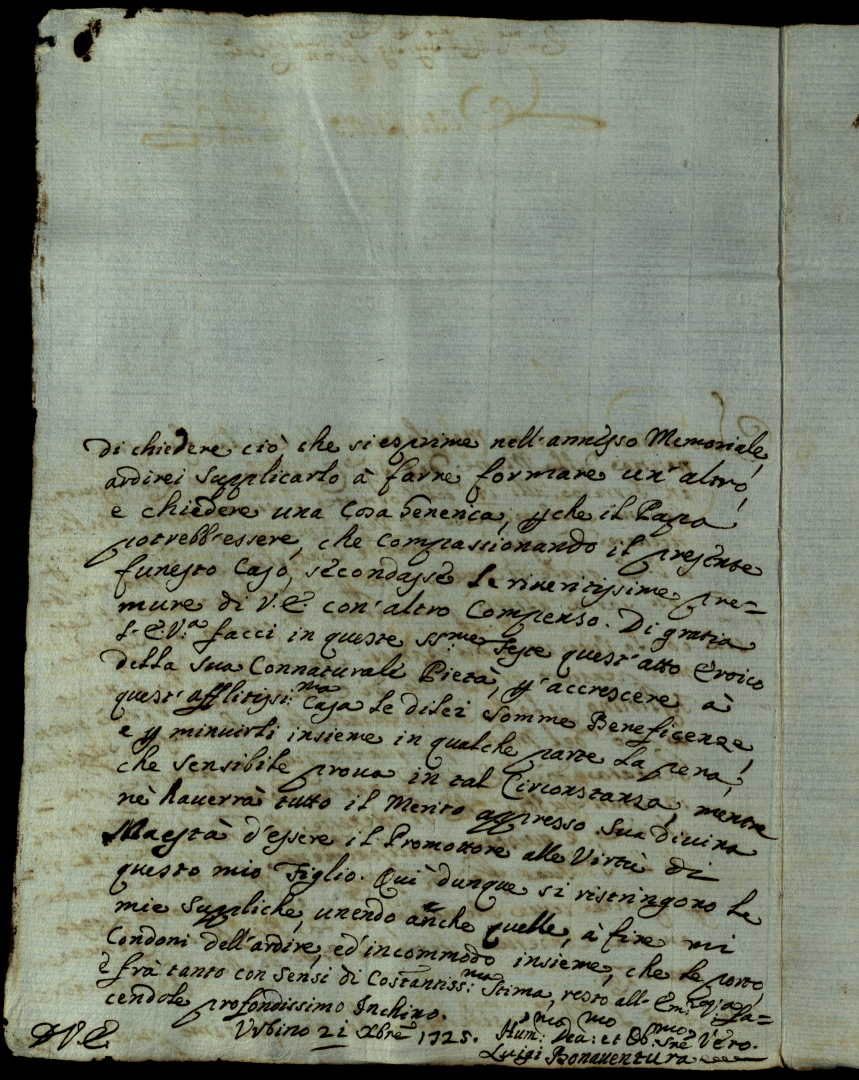 di chiedere ciò, che si esprime nell'annesso Memoriale,
ardirei supplicarlo à farne formare un'altro,
e chiedere una Cosa Generica, p̱che il Papa
potrebb'essere, che compassionando il presente
funesto Caso, secondasse le riveritissime pre=
mure di V. E. con'altro Compenso. Di gratia
l'E. V.ª facci in queste ss.me Feste quest'atto Eroico
della sua Connaturale Pietà, p̱ accrescere à
quest'afflitissi:ma Casa le di lei somme Beneficenze,
e p̱ minuirli insieme in qualche parte la pena,
che sensibile prova in tal Circonstanza, mentre
nè haverrà tutto il Merito appresso Sua Divina
Maestà d'essere il Promottore alle Virtù di
questo mio Figlio. Quì dunque si ristringono le
mie suppliche, unendo anche quelle, à fine mi
Condoni dell'ardire, ed'incommodo insieme, che le porto,
e frà tanto con sensi di Costantiss:ma Stima, resto all'Em: fa=
cendole profondissimo Inchino.
D V. E. Urbino 21 Xbre 1725. Hum:mo Dev:mo et Ob:mo Sre Vero.
Luigi Bonaventura